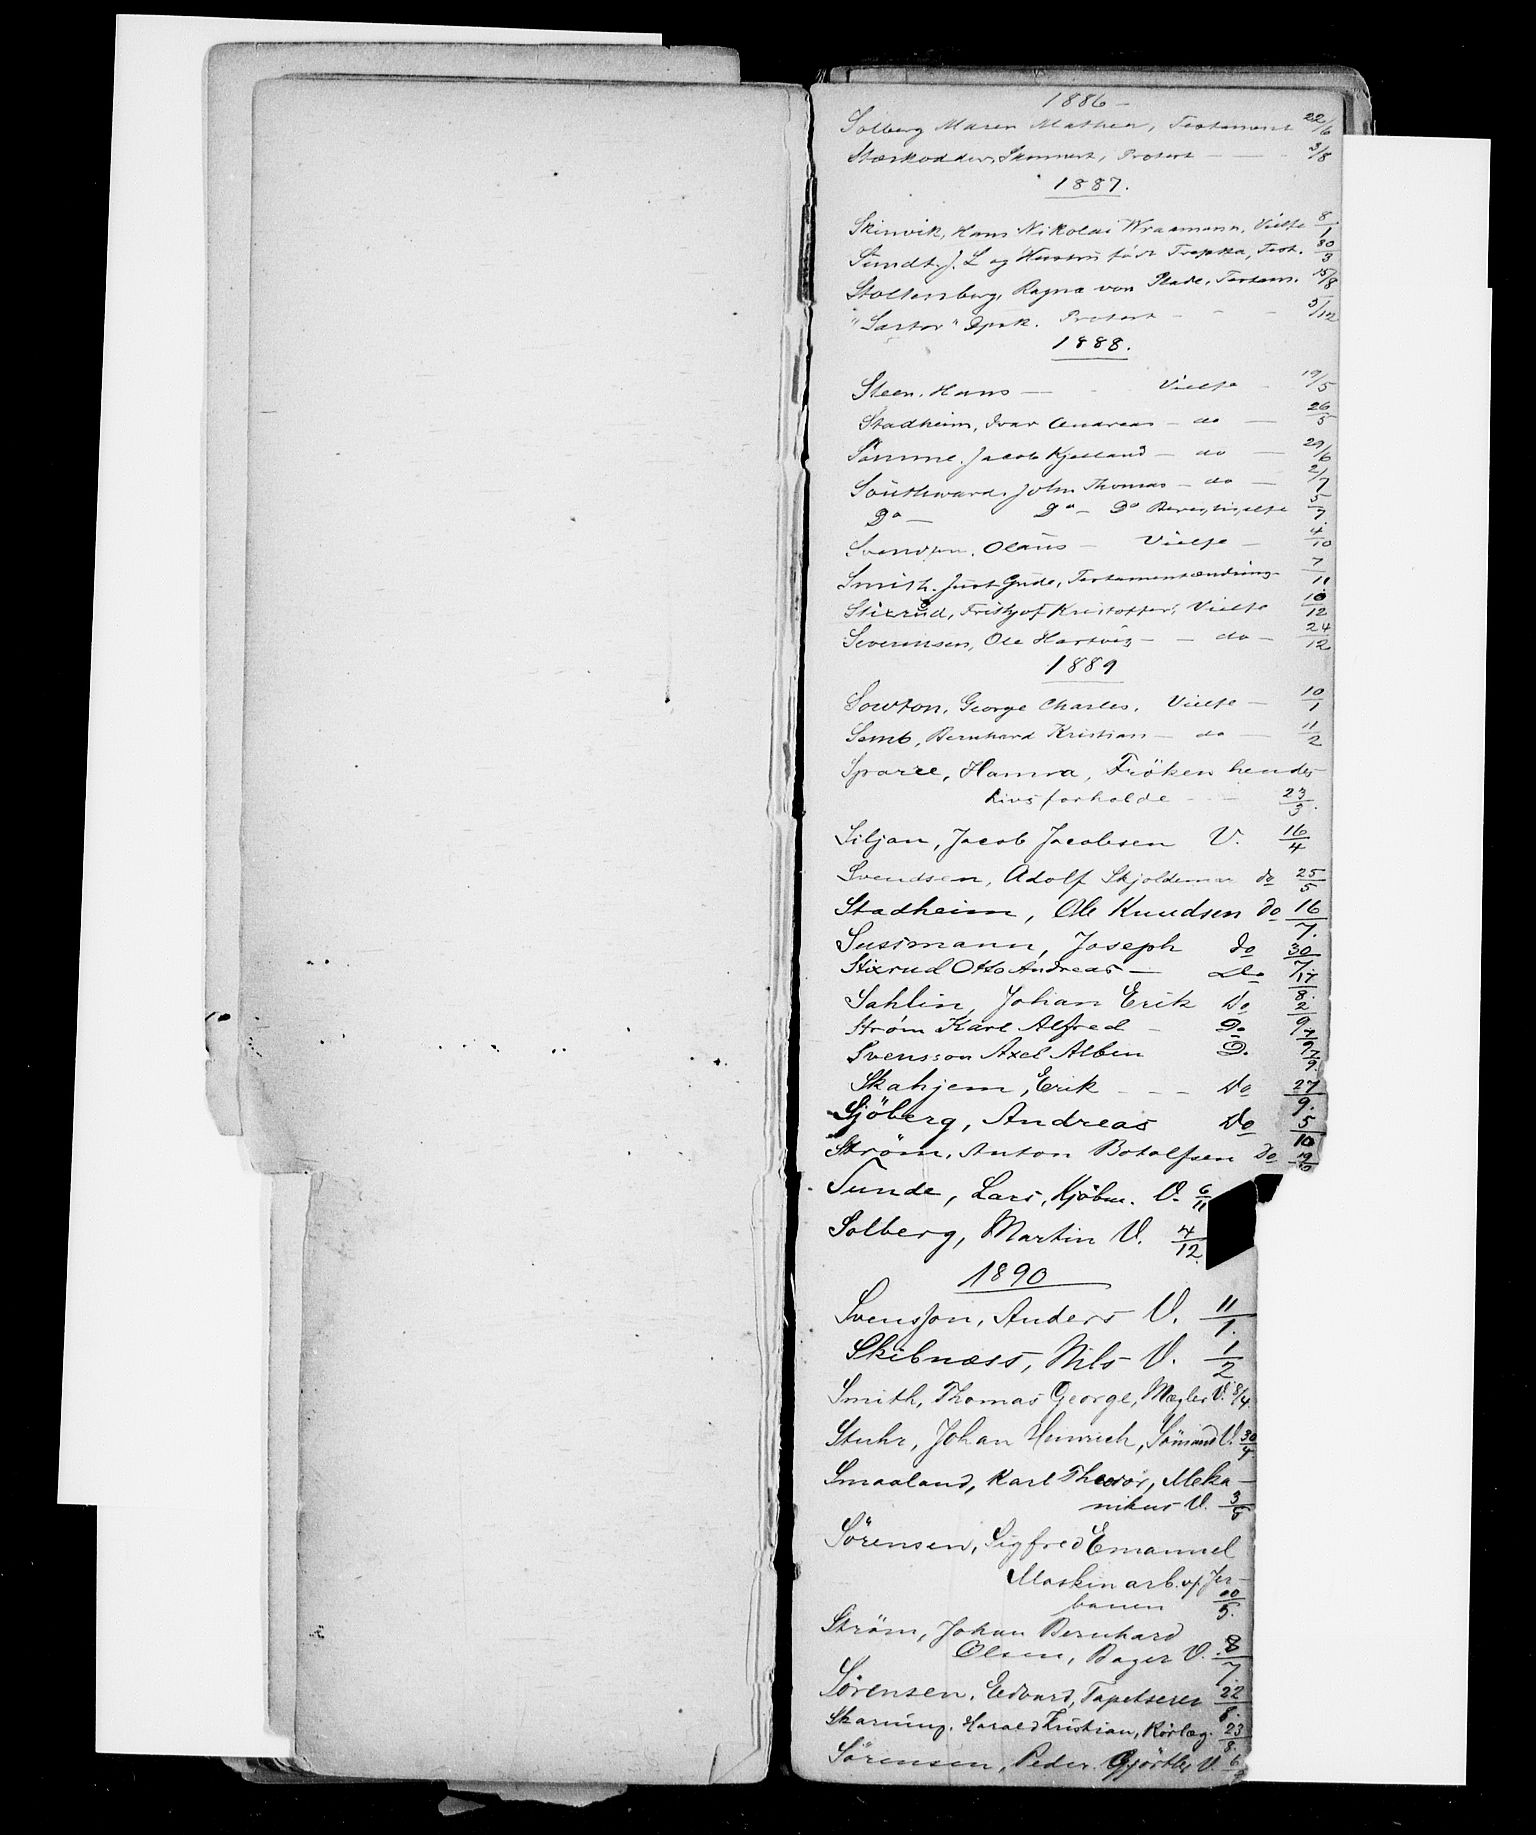 1886 –
Solberg Maren Mathea, Testament 22/6
Protest – – 3/8
1887.
Skinvik, Hans Nikolai Wraamann, Vielse 8/1
Sundt, J. L og Hustru født Treptka, Test. 30/3
Stoltenberg, Ragna von Plade, Testam. 15/8
"Sartor" Dpsk. Protest – – – 5/12
1888.
Steen, Hans — Vielse – 19/5
Stadheim, Ivar Andreas – do — 26/5
Sømme, Jacob Kjelland – do — 29/6
Southward, John Thomas – do — 2/7
Do — Do – Do 5/7
Svendsen, Olaus – Vielse – 4/10
Smith, Just Gude, Testamentændring 7/11
Stixrud, Frithjof Kristoffer, Vielse 10/12
Severinsen, Ole Hartvig – – do – 24/12
1889
Sowton, George Charles, Vielse – 10/1
Semb, Bernhard Kristian – do — 11/2
Sparre, Hanna, Fröken hendes
Livsforholde – – 23/3.
Siljan, Jacob Jacobsen V. 16/4
Svendsen, Adolf Skjoldemar do 25/5
Stadheim, Ole Knudsen do 16/7.
Sussmann, Joseph do 30/7
Stixrud Otto Andreas — Do 17/8.
Sahlin, Johan Erik Do 2/9
Strøm Karl Alfred – Do 7/9
Svensson Axel Albin D. 7/9.
Skahjem, Erik – – – Do 27/9.
Sjöberg, Andreas Do 5/10
Strøm, Anton Botolfsen Do 19/10
Sunde, Lars, Kjöbm. V. 6/11
Solberg, Martin V. 4/12.
1890
Svensson, Anders V. 11/1.
Skibnæss, Nils V. 1/2
Smith, Thomas George, Mægler V. 8/4.
Stuhr, Johan Heinrich, Sömand V. 30/4
Smaaland, Karl Theodor, Meka-
nikus V. 3/5
Sörensen, Sigfred Emanuel
Maskinarb. v/ Jer-
banen 20/5.
Strøm, Johan Bernhard
Olsen, Bager V. 8/7.
Sörensen, Edvard, Tapetserer 22/8.
Skarning, Harald Kristian, Rørlæg. 23/8.
Sörensen, Peder, Gjörtler V. 6/9